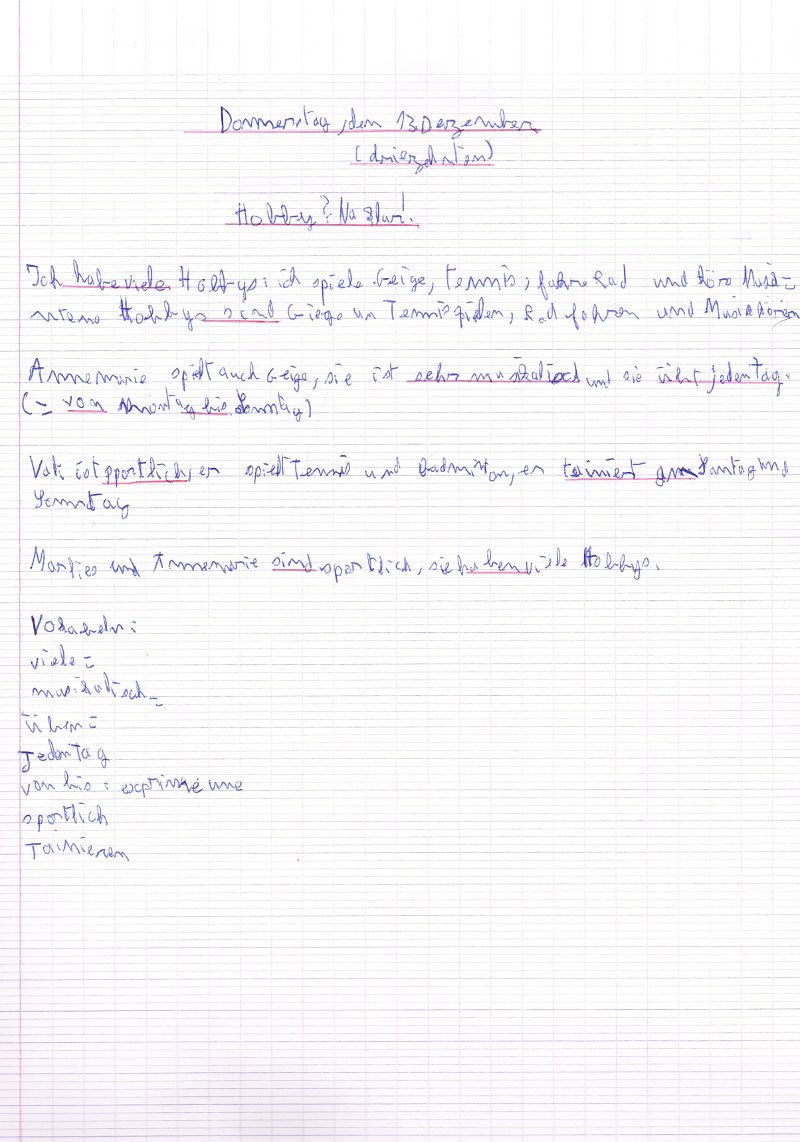 Donnerstag, den 13 Dezember
(dreizehnten)
Hobby? Na klar!
Ich habe viele Hobbys: ich spiele Geige, Tennis, fahre Rad und höre Musik =
meine Hobbys sind Giege un Tennis spielen, Rad fahren und Musik hören
Annemarie spielt auch Geige, sie ist sehr musikalisch und sie übt jeden tag.
(= von Montag bis Sonntag)
Vati ist sportlich, er spielt Tennis und Badminton, er tainiert am Samtag und
Sonntag
Marlies und Annemarie sind sportlich, sie haben viele Hobbys.
Vokabeln:
viele =
musikalisch =
üben =
Jeden Tag
von bis : exprime une
sportlich
Tainieren